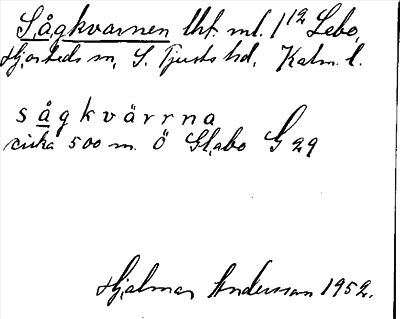 Sågkvarnen lhf. ml. 1¹² Lebo,
Hjorteds sn, S. Tjusts hd, Kalm. l.
sågkvärrna
cirka 500 m. Ö Glabo G 29
Hjalmar Andersson 1952.